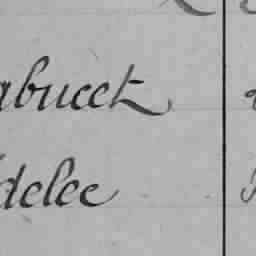 abucet
delee